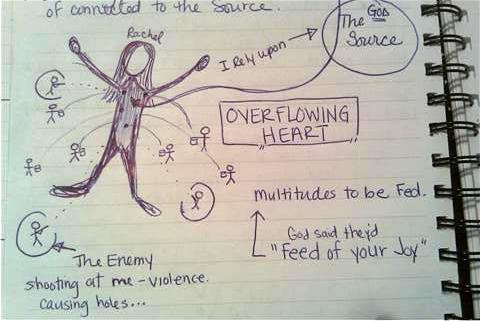 of connected to the Source.
Rachel
I Rely upon
The GOD
Source
OVERFLOWING
HEART
multitudes to be Fed.
God said they'd
"Feed of your Joy"
The Enemy
shooting at me - violence.
causing holes...